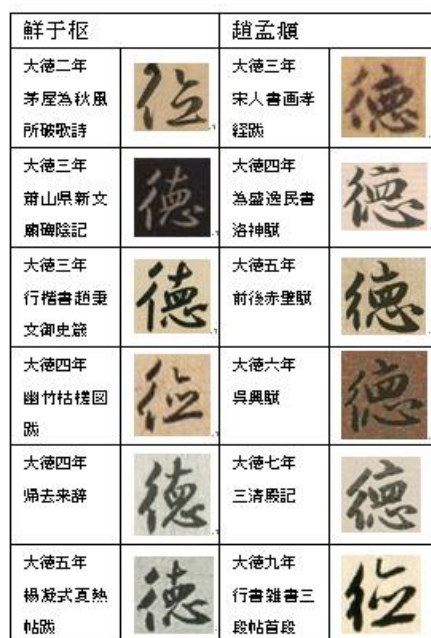 鮮于枢
趙孟頫
大徳二年
茅屋為秋風
所破歌詩
德
大徳三年
宋人書画孝
経跋
德
大徳三年
蕭山県新文
廟碑陰記
德
大徳四年
為盛逸民書
洛神賦
德
大徳三年
行楷書趙秉
文御史箴
德
大徳五年
前後赤壁賦
德
大徳四年
幽竹枯槎図
跋
德
大徳六年
呉興賦
德
大徳四年
帰去来辞
德
大徳七年
三清殿記
德
大徳五年
楊凝式夏熱
帖跋
德
大徳九年
行書雑書三
段帖首段
德